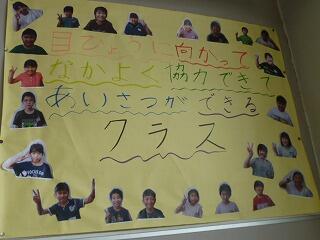 目ひょうに向かって
なかよく協力できて
あいさつができる
クラス